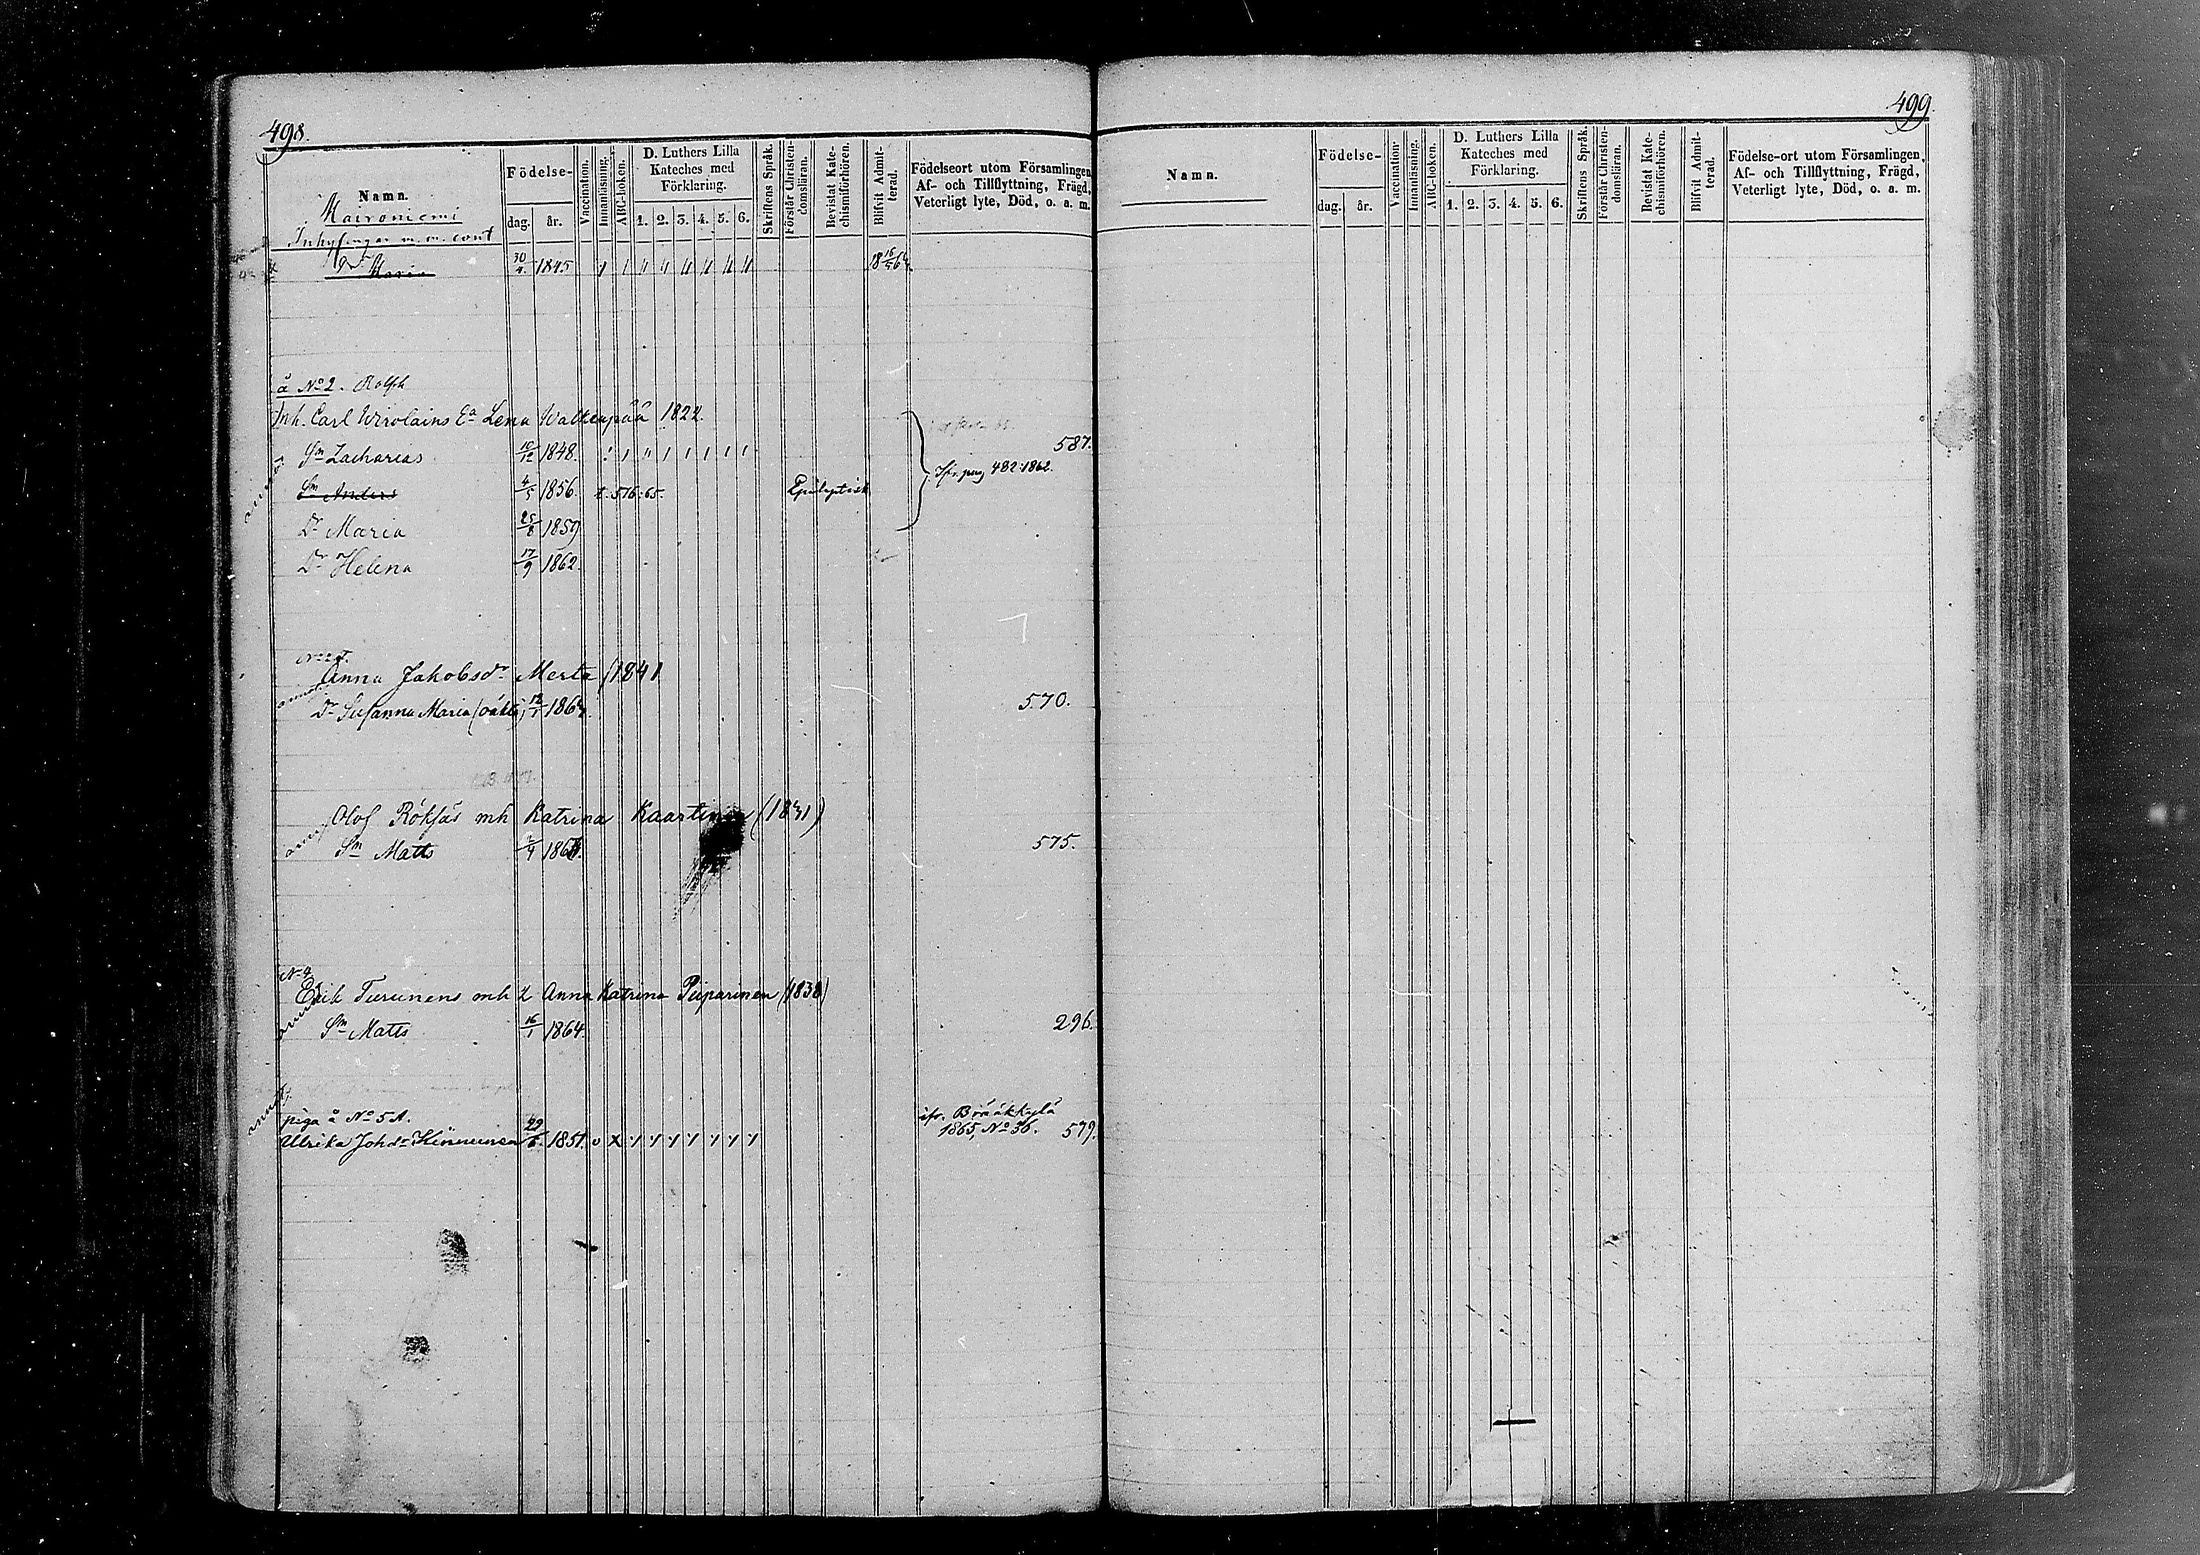 498.
Namn.
Födelse-
dag. år.
Vaccination.
Innanläsning.
ABC-boken.
D. Luthers Lilla
Kateches med
Förklaring.
1. 2. 3. 4. 5. 6.
Skriftens Språk.
Förstår Christen-
domsläran.
Bevistat Kate-
chismiförhören.
Blifvit Admit-
terad.
Födelseort utom Församlingen,
Af- och Tillflyttning, Frägd,
Veterligt lyte, Död, o. a. m.
Maironiemi
Inhysingar m. m. cont
Dr Maria 30/4 1845 18 16/5 64.
å No 2. Rolfh
Inh. Carl Wirolains Ea Lena Walkiapää 1822.
Sm Zacharias 10/12 1848. 587.
Ifr. pag 482 1862.
Sm Anders 4/5 1856. t. 576. 65. Epileptisk
Dr Maria 25/8 1859
Dr Helena 17/9 1862.
Anna Jakobsdr Merta (1841
Dr Susanna Maria (oäkta) 12/1 1864. 570.
Olof Röksäs mh Katrina Kaartinen (1841)
Sm Matts 186 575.
No 4
Erik Turunens mh Anna Katrina Piiparinen (1838)
Sm Matts 16/1 1864. 296.
piga å No 5 A.
Ulrika Johdr Kinnunen 29/6 1851. v x
ifr. Brääkkylä
1865, No 36. 579.
499.
Namn.
Födelse-
dag. år.
Vaccination
Innanläsning.
ABC-boken.
D. Luthers Lilla
Kateches med
Förklaring.
1. 2. 3. 4. 5. 6.
Skriftens Språk.
Förstår Christen-
domsläran.
Bevistat Kate-
chismiförhören.
Blifvit Admit-
terad.
Födelse-ort utom Församlingen,
Af- och Tillflyttning, Frägd,
Veterligt lyte, Död, o. a. m.